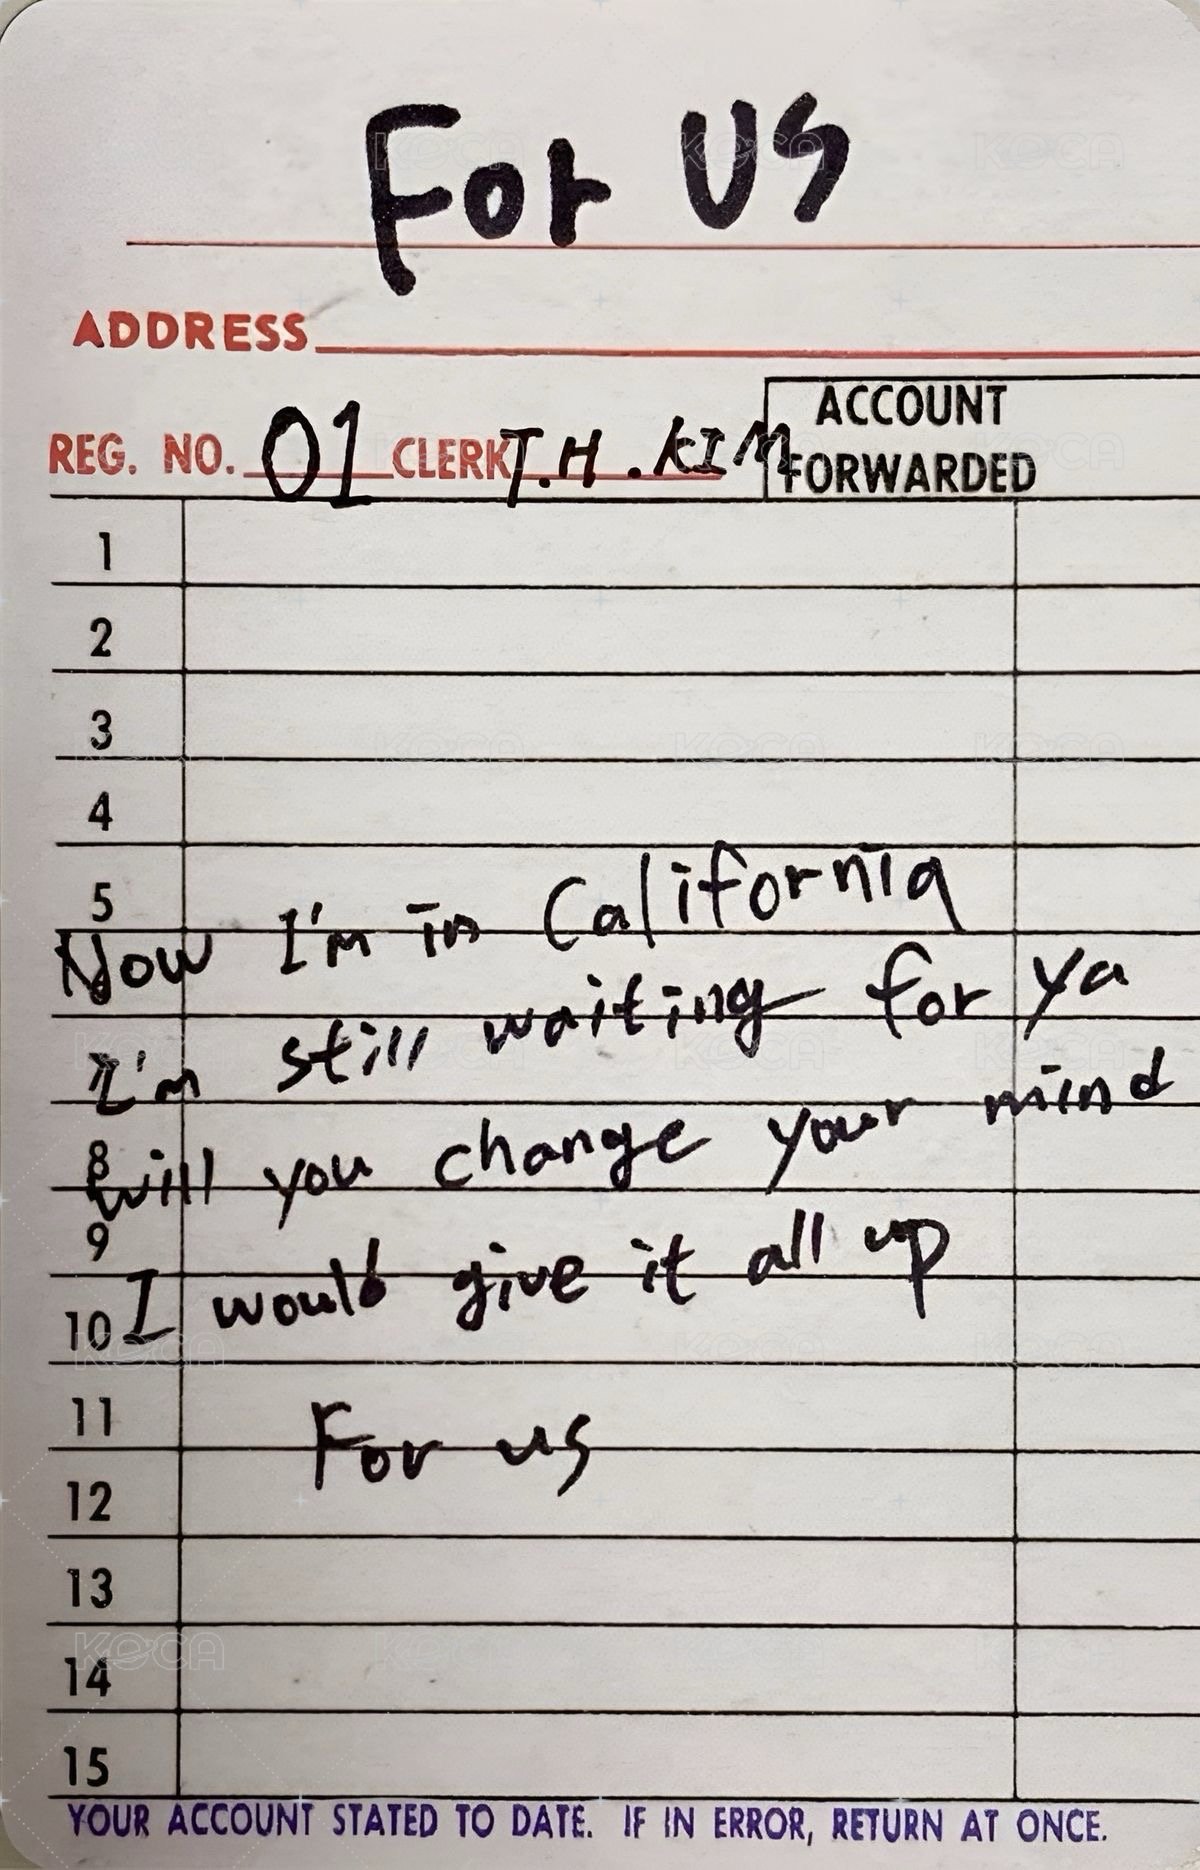 For US
ADDRESS
REG. NO. 01 CLERK T.H.KIM
ACCOUNT
FORWARDED
1
2
3
4
5
Now I'm in California
I'm still waiting for ya
8
will you change your mind
9
I would give it all up
10
11
For us
12
13
14
15
YOUR ACCOUNT STATED TO DATE. IF IN ERROR, RETURN AT ONCE.
KOCA